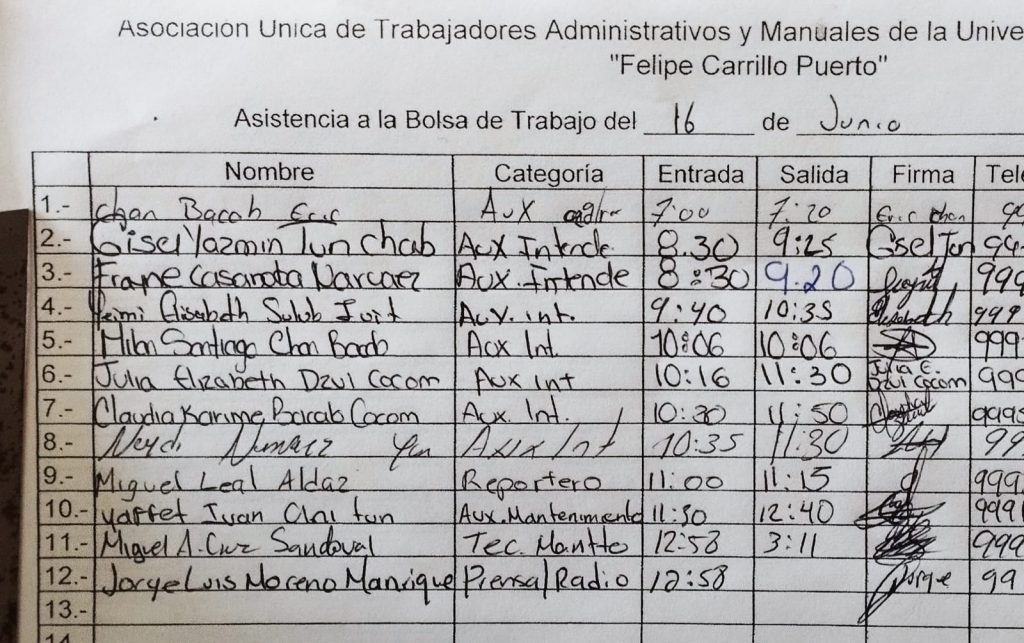 Asociación Unica de Trabajadores Administrativos y Manuales de la Unive
"Felipe Carrillo Puerto"
Asistencia a la Bolsa de Trabajo del 16 de Junio
Nombre Categoría Entrada Salida Firma Tele
1.- Chan Bacab Eric Aux 7:00 7:20 Eric Chan 99
2.- Gisel Yazmin Tun Chab Aux Intende 8.30 9:25 Gisel Tun 99
3.- Casanota Narvaez Aux. Intende 8:30 9.20 999
4.- Elisabeth Sulub Aux. int. 9:40 10:35 Elisabeth 999
5.- Santiago Chan Bacab Aux Int. 10:06 10:06 999
6.- Julia Elizabeth Dzul Cocom Aux Int 10:16 11:30 Julia E. Dzul Cocom 999
7.- Claudia Karime Bacab Cocom Aux. Int. 10:20 11:50 999
8.- Neydi Aux Int 10:35 11:30 99
9.- Miguel Leal Aldaz Reportero 11:00 11:15 999
10.- Yaffet Ivan Aux. Mantenimiento 11:30 12:40 999
11.- Miguel A. Cruz Sandoval Tec. Mantto 12:58 3:11 999
12.- Jorge Luis Moreno Manrique Prensa/Radio 12:58 Jorge 99
13.-
14